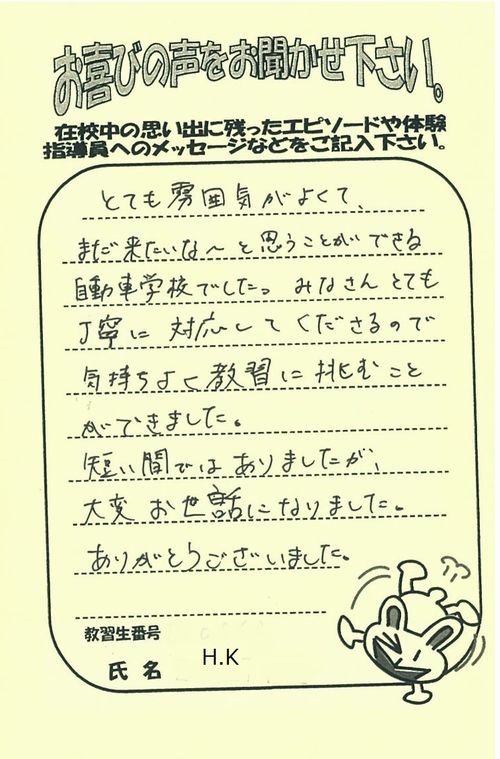 お喜びの声をお聞かせ下さい。
在校中の思い出に残ったエピソードや体験
指導員へのメッセージなどをご記入下さい。
とても雰囲気がよくて、
まだ来たいな〜と思うことができる
自動車学校でしたっ みなさんとても
丁寧に対応してくださるので
気持ちよく教習に挑むこと
ができました。
短い間ではありましたが、
大変お世話になりました。
ありがとうございました。
教習生番号
氏名 H.K